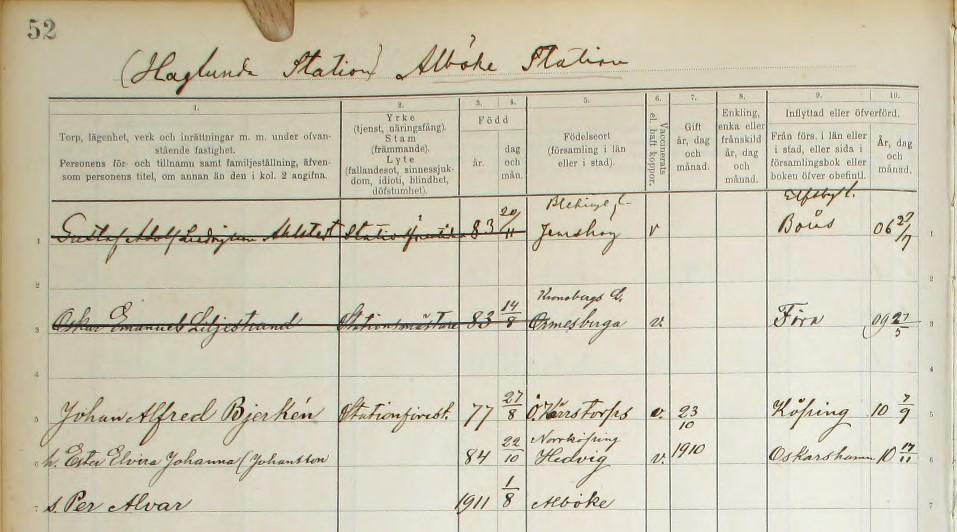 52
(Haglunda Station) Alböke Station
1. 2. 3. 4. 5. 6. 7. 8. 9. 10.
Torp, lägenhet, verk och inrättningar m. m. under ofvanstående fastighet.
Personens för- och tillnamn samt familjeställning, äfvensom personens titel, om annan än den i kol. 2 angifna.
Yrke (tjenst, näringsfång). Stam (främmande). Lyte (fallandesot, sinnessjukdom, idioti, blindhet, döfstumhet).
Född
år. dag och mån.
Födelseort (församling i län eller i stad).
Vaccinerats el. haft koppor.
Gift år, dag och månad.
Enkling, enka eller frånskild år, dag och månad.
Inflyttad eller öfverförd.
Från förs. i län eller i stad, eller sida i församlingsbok eller boken öfver obefintl.
År, dag och månad.
Blekinge l. Elfsby l.
1 Gustaf Adolf 83 20/11 Jemshog v Borås 06 27/7 1
2 2
Kronobergs L.
3 Oskar Emanuel Liljestrand Stationsmästare 83 14/8 Ormesberga v. Föra 09 27/5 3
4 4
5 Johan Alfred Bjerkén Stationsförest. 77 27/8 Ö. Harrstorps v. 23/10 Köping 10 7/9 5
Norrköping
6 h. Ester Elvira Johanna (Johansson 84 22/10 Hedvig v. 1910 Oskarshamn 10 17/11 6
7 s. Per Alvar 1911 1/8 Alböke 7